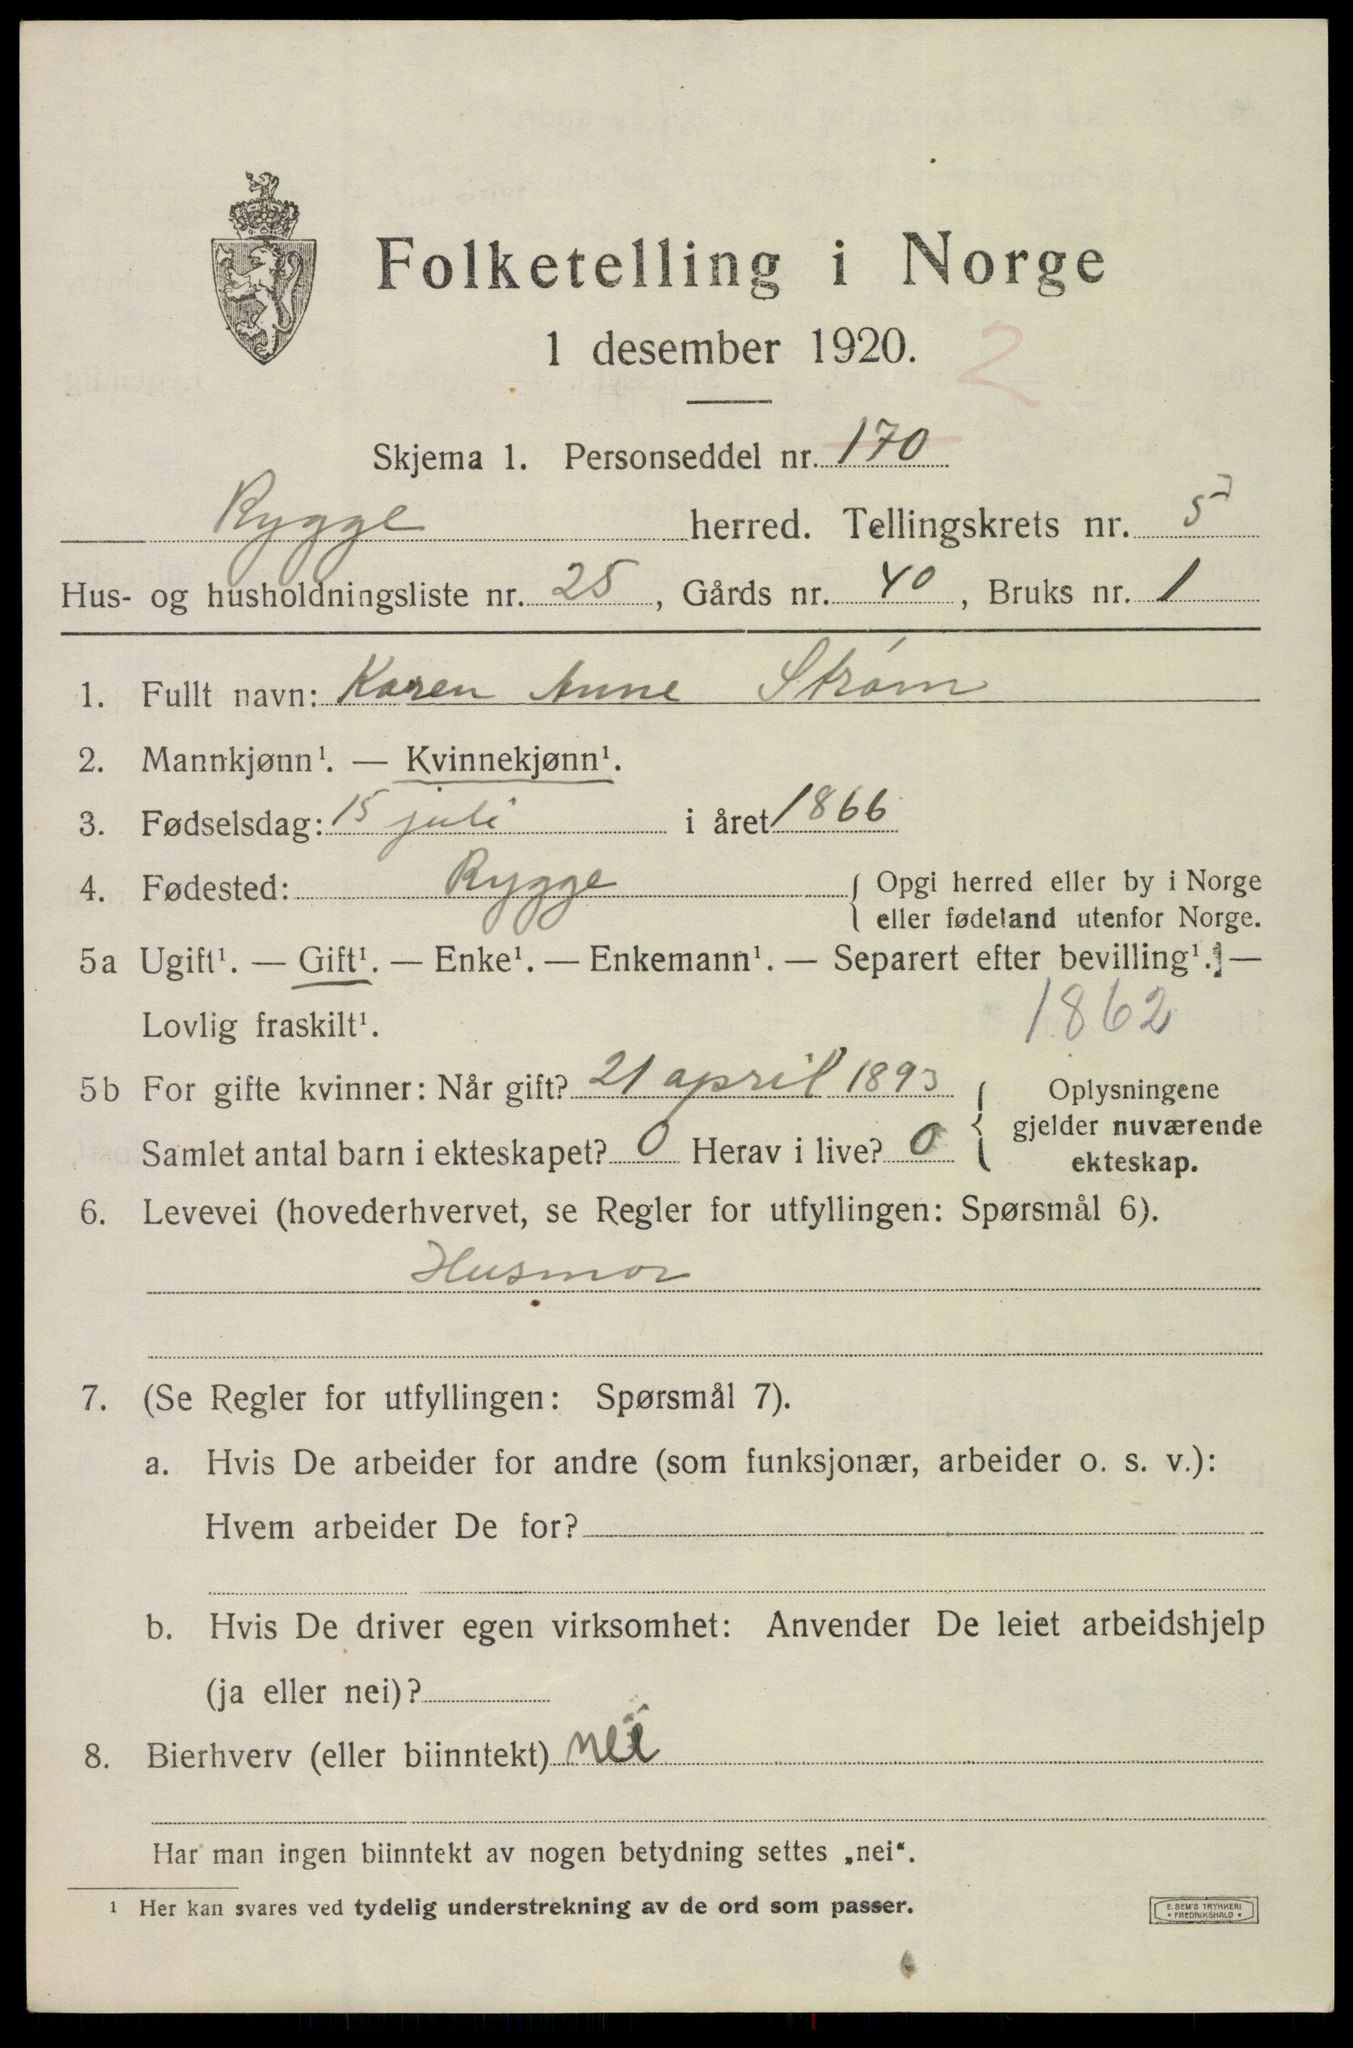 Folketelling i Norge
1 desember 1920.
2
Skjema 1. Personseddel nr. 170
Rygge herred. Tellingskrets nr. 5
Hus- og husholdningsliste nr. 25, Gårds nr. 40, Bruks nr. 1
1. Fullt navn: Karen Anne Strøm
2. Mannkjønn¹. — Kvinnekjønn¹.
3. Fødselsdag: 15 juli i året 1866
4. Fødested: Rygge { Opgi herred eller by i Norge
eller fødeland utenfor Norge.
5a Ugift¹. — Gift¹. — Enke¹. — Enkemann¹. — Separert efter bevilling¹. —
Lovlig fraskilt¹.
1862
5b For gifte kvinner: Når gift? 21 april 1893
Samlet antal barn i ekteskapet? 0 Herav i live? 0
{ Oplysningene
gjelder nuværende
ekteskap.
6. Levevei (hovederhvervet, se Regler for utfyllingen: Spørsmål 6).
Husmor
7. (Se Regler for utfyllingen: Spørsmål 7).
a. Hvis De arbeider for andre (som funksjonær, arbeider o. s. v.):
Hvem arbeider De for?
b. Hvis De driver egen virksomhet: Anvender De leiet arbeidshjelp
(ja eller nei)?
8. Bierhverv (eller biinntekt) nei
Har man ingen biinntekt av nogen betydning settes „nei“.
¹ Her kan svares ved tydelig understrekning av de ord som passer.
E. SEM'S TRYKKERI
• FREDRIKSHALD •